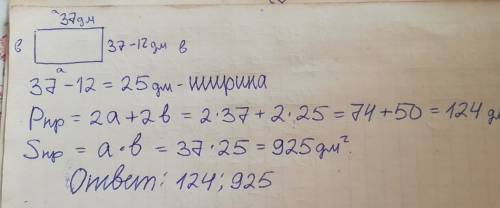 a
37дм
в 37-12дм в
a
37-12=25дм-ширина
Pпр = 2a+2в = 2·37+2·25=74+50=124 дм
Sпр = a·в = 37·25=925дм².
Ответ: 124; 925